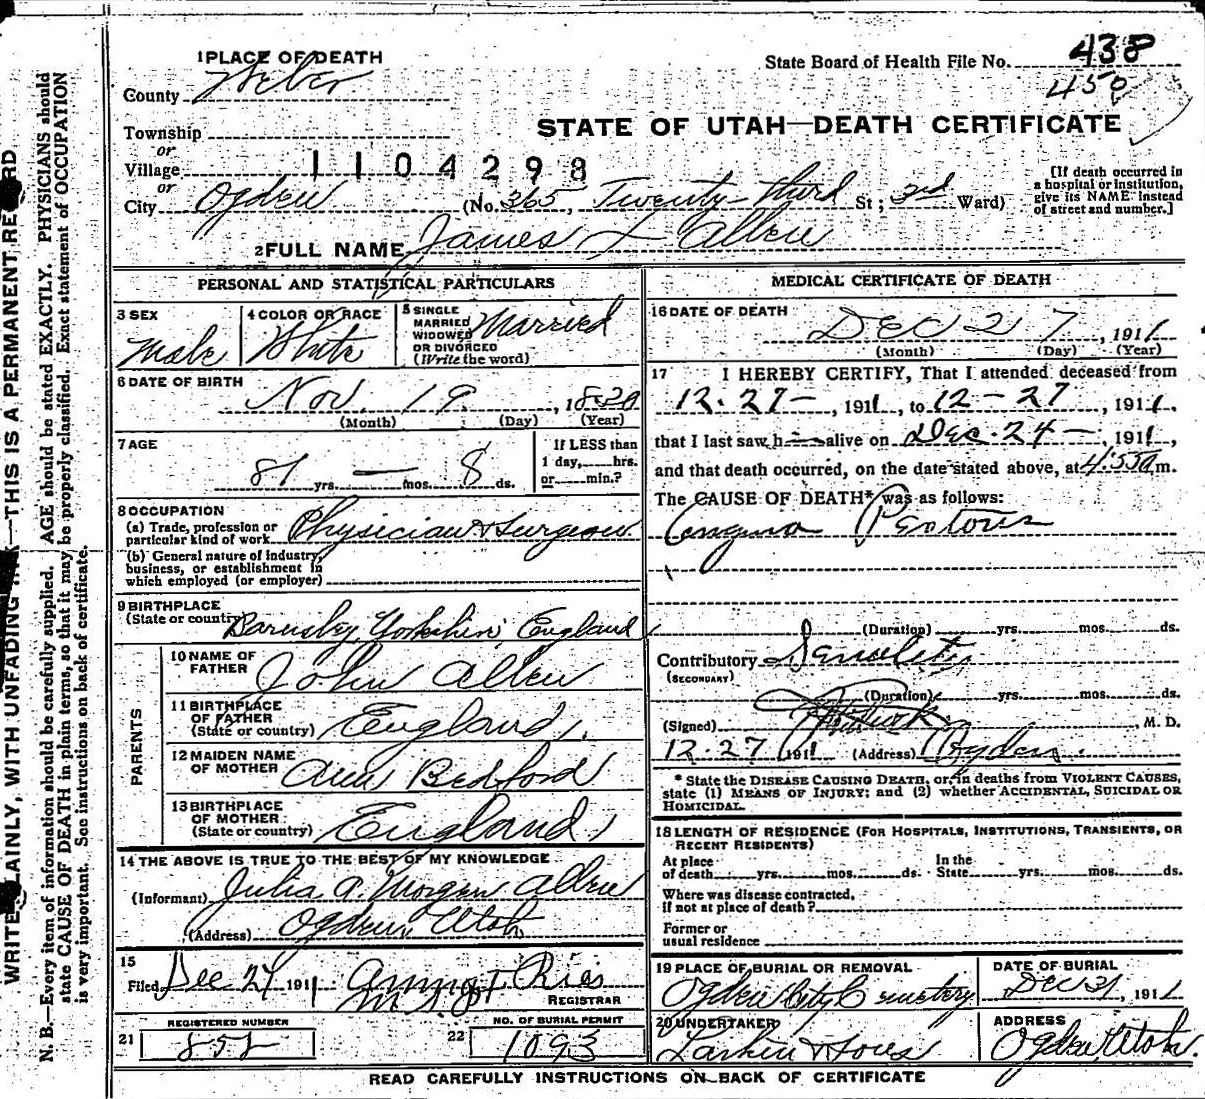 1 PLACE OF DEATH
County Weber
State Board of Health File No. 438
450
STATE OF UTAH—DEATH CERTIFICATE
Township
or
Village
1104298
or
City Ogden (No. 365, Twenty-third St; 3rd Ward)
[If death occurred in
a hospital or institution,
give its NAME instead
of street and number.]
2 FULL NAME James L Allen
PERSONAL AND STATISTICAL PARTICULARS
3 SEX
Male
4 COLOR OR RACE
White
5 SINGLE
MARRIED
WIDOWED
OR DIVORCED
(Write the word)
Married
6 DATE OF BIRTH
Nov. 19, 1830
(Month) (Day) (Year)
7 AGE
81 yrs. — mos. 8 ds.
If LESS than
1 day, hrs.
or min.?
8 OCCUPATION
(a) Trade, profession or
particular kind of work Physician & Surgeon
(b) General nature of industry,
business, or establishment in
which employed (or employer)
9 BIRTHPLACE
(State or country) Barnsley Yorkshire England
PARENTS
10 NAME OF
FATHER John Allen
11 BIRTHPLACE
OF FATHER
(State or country) England
12 MAIDEN NAME
OF MOTHER Ann Bedford
13 BIRTHPLACE
OF MOTHER
(State or country) England
14 THE ABOVE IS TRUE TO THE BEST OF MY KNOWLEDGE
(Informant) Julia A. Morgan Allen
(Address) Ogden, Utah
15
Filed Dec 27 1911
REGISTRAR
REGISTERED NUMBER
21 852
NO. OF BURIAL PERMIT
22 1093
MEDICAL CERTIFICATE OF DEATH
16 DATE OF DEATH
Dec 27, 1911
(Month) (Day) (Year)
17 I HEREBY CERTIFY, That I attended deceased from
12-27-, 1911, to 12-27, 1911,
that I last saw h alive on Dec. 24-, 1911,
and that death occurred, on the date stated above, at 4:55 a m.
The CAUSE OF DEATH* was as follows:
Angina Pectoris
(Duration) yrs. mos. ds.
Contributory Senility
(SECONDARY)
(Duration) yrs. mos. ds.
(Signed) , M. D.
12-27 1911 (Address) Ogden.
* State the DISEASE CAUSING DEATH, or, in deaths from VIOLENT CAUSES,
state (1) MEANS OF INJURY; and (2) whether ACCIDENTAL, SUICIDAL OR
HOMICIDAL.
18 LENGTH OF RESIDENCE (FOR HOSPITALS, INSTITUTIONS, TRANSIENTS, OR
RECENT RESIDENTS)
At place
of death yrs. mos. ds.
In the
State yrs. mos. ds.
Where was disease contracted,
if not at place of death?
Former or
usual residence
19 PLACE OF BURIAL OR REMOVAL
Ogden City Cemetery
DATE OF BURIAL
Dec 31, 1911
20 UNDERTAKER
Larkin & Sons
ADDRESS
Ogden, Utah.
READ CAREFULLY INSTRUCTIONS ON BACK OF CERTIFICATE
WRITE PLAINLY, WITH UNFADING INK—THIS IS A PERMANENT RECORD
N. B.—Every item of information should be carefully supplied. AGE should be stated EXACTLY. PHYSICIANS should
state CAUSE OF DEATH in plain terms, so that it may be properly classified. Exact statement of OCCUPATION
is very important. See instructions on back of certificate.